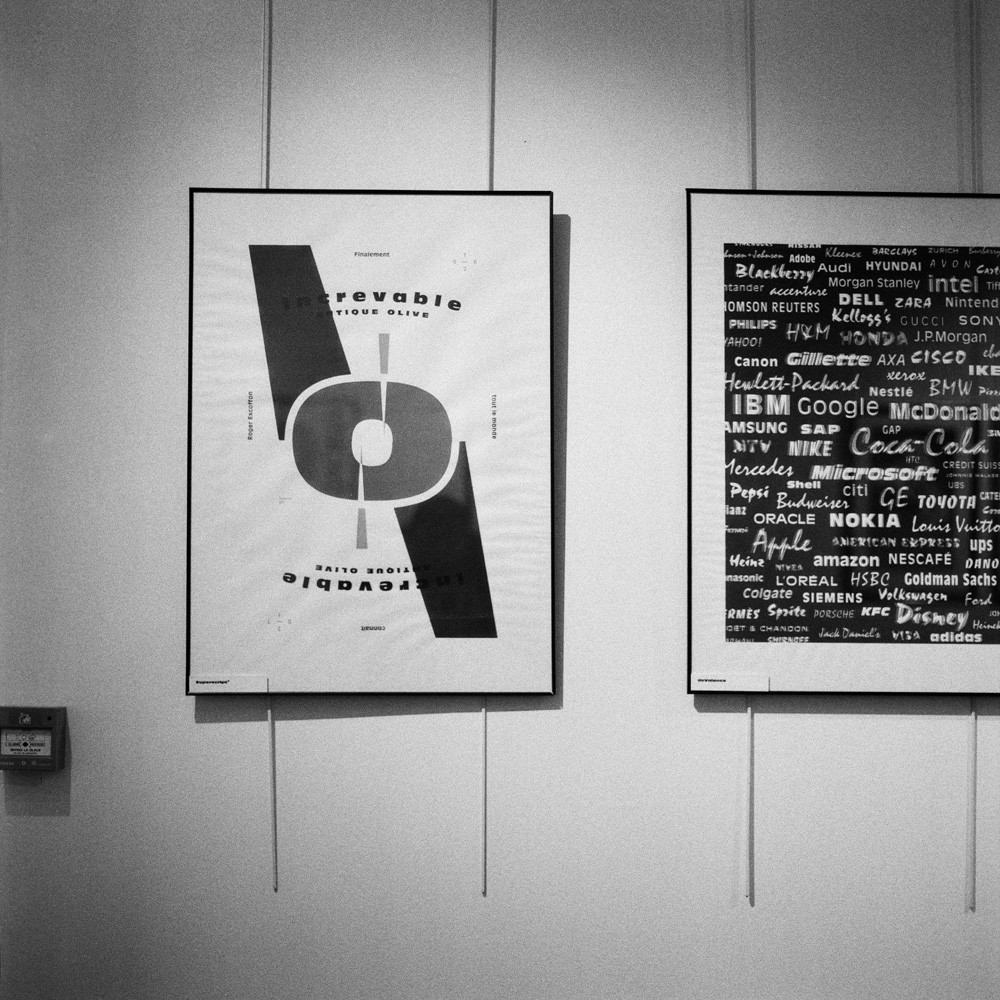 Finalement
increvable
ANTIQUE OLIVE
Roger Excoffon
tout le monde
ANTIQUE OLIVE
increvable
connaît
Superscript²
NISSAN
Kleenex BARCLAYS ZURICH
Adobe
Blackberry Audi HYUNDAI AVON
accenture Morgan Stanley intel
DELL ZARA
THOMSON REUTERS Nintendo
Kellogg's GUCCI SONY
PHILIPS H&M HONDA J.P.Morgan
YAHOO!
Canon Gillette AXA CISCO
IKE
Hewlett-Packard xerox
Nestlé BMW
IBM Google McDonald
SAMSUNG SAP GAP
MTV NIKE Coca-Cola
HTC
Mercedes Microsoft CREDIT SUISS
JOHNNIE WALKER
Shell UBS
Pepsi citi GE TOYOTA
Budweiser
ORACLE NOKIA Louis Vuitto
Apple AMERICAN EXPRESS ups
Heinz NIVEA amazon NESCAFÉ DANO
L'ORÉAL HSBC Goldman Sachs
Colgate SIEMENS Volkswagen Ford
Sprite PORSCHE KFC Disney
MOET & CHANDON Jack Daniel's VISA adidas
SMIRNOFF